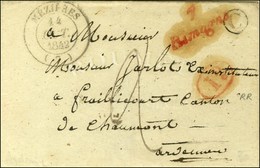 MEZIERES
14
1842
à Monsieur
Monsieur Jarlot Exinstituteur
à fraillicourt Canton
de Chaumont
ardennes
2